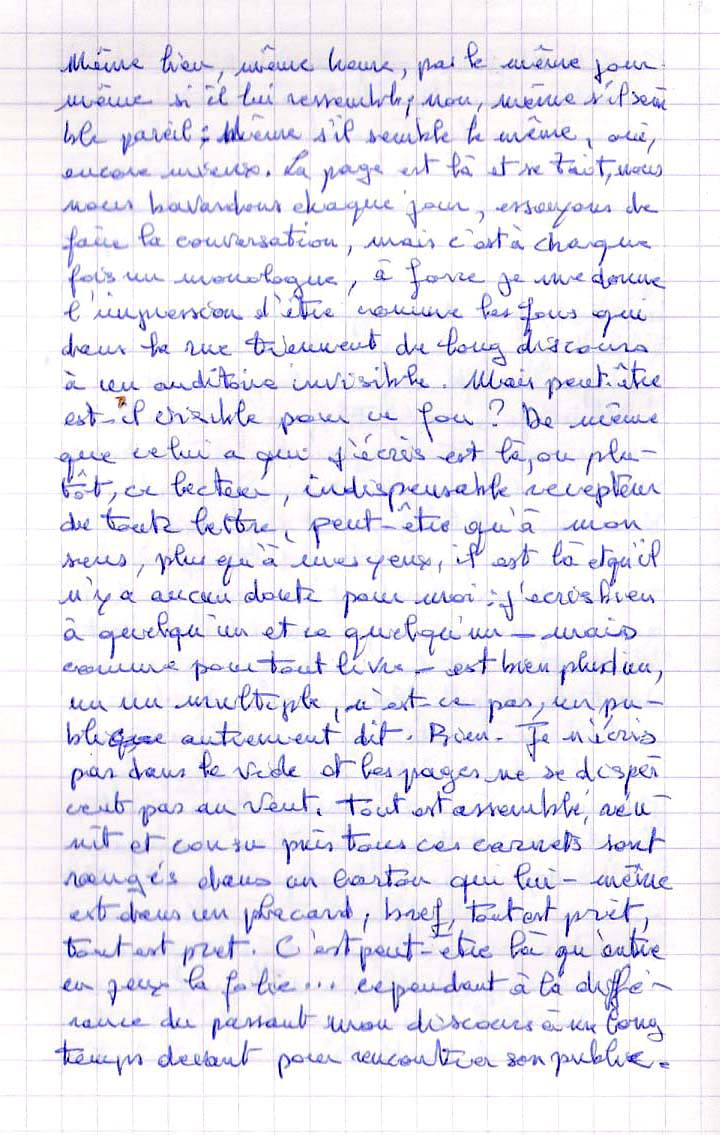 Même lieu, même heure, pas le même jour
même si il lui ressemble, non, même s'il sem
ble pareil ; Même s'il semble le même, oui,
encore mieux. La page est là et se tait, nous
nous bavardons chaque jour, essayons de
faire la conversation, mais c'est à chaque
fois un monologue, à force je me donne
l'impression d'être comme les fous qui
dans la rue tiennent de long discours
à un auditoire invisible. Mais peut-être
est-il visible pour ce fou ? De même
que celui a qui j'écris est là, ou plu-
tôt, ce lecteur, indispensable recepteur
de toute lettre, peut-être qu'à mon
sens, plus qu'à mes yeux, il est là et qu'il
n'y a aucun doute pour moi : j'ecris bien
à quelqu'un et ce quelqu'un - mais
comme pour tout livre - est bien plus d'un,
un un multiple, n'est-ce pas, un pu-
blique autrement dit. Bien. Je n'écris
pas dans le vide et les pages ne se disper
cent pas au vent. Tout est assemblé, réu-
nit et cousu puis tous ces carnets sont
rangés dans un carton qui lui-même
est dans un placard, bref, tout est prêt,
tout est pret. C'est peut-être là qu'entre
en jeux la folie... cependant à la diffé-
rence du passant mon discours à un long
temps devant pour rencontrer son public.